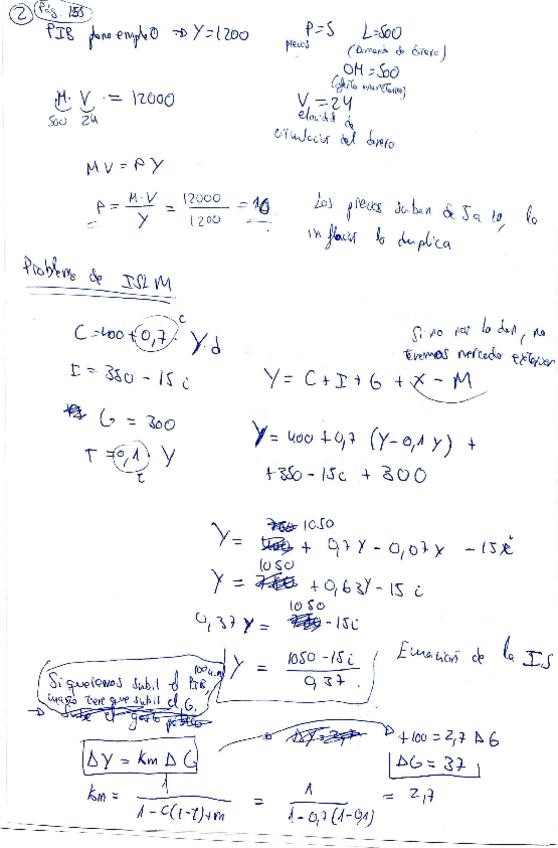 ② Pág. 155
PIB pleno empleo ⇒ Y=1200
P=5 L=500
precios (Demanda de dinero)
OM=500
(oferta monetaria)
M·V = 12000
500 24
V=24
velocidad de
circulación del dinero
MV = PY
P = M·V / Y = 12000 / 1200 = 10
Los precios suben de 5 a 10, la
inflación lo duplica
Problema de ISLM
C=400+0,7·Yd
c
I = 350 - 15i
G = 300
T = 0,1 Y
t
Si no nos lo dan, no
tenemos mercado exterior
Y = C + I + G + X - M
Y = 400 + 0,7 (Y-0,1Y) +
+350-15i + 300
Y = 1050 + 0,7Y - 0,07Y - 15i
Y = 1050 + 0,63Y - 15i
0,37Y = 1050 - 15i
Y = 1050 - 15i / 0,37
Ecuación de la IS
Si queremos subir el PIB 100 u.m.
tiene que subir el G.
ΔY = km ΔG
+100 = 2,7 ΔG
ΔG = 37
km = 1 / 1-c(1-t)+m = 1 / 1-0,7(1-0,1) = 2,7